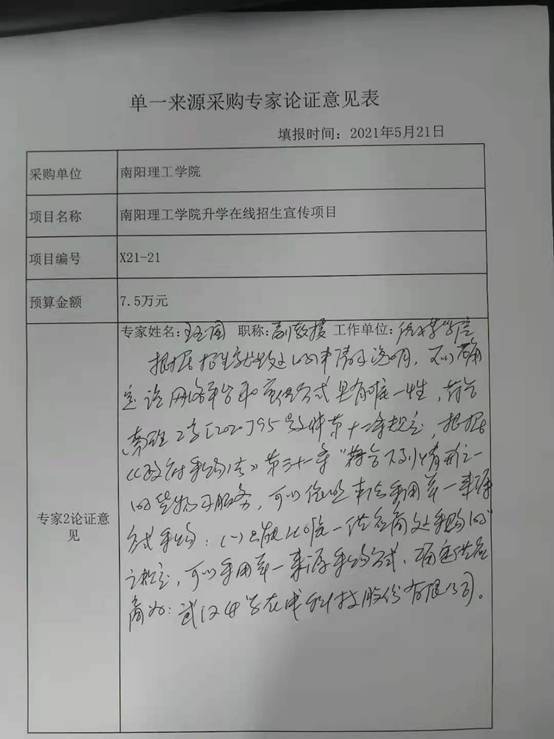 单一来源采购专家论证意见表
填报时间：2021年5月21日
采购单位 南阳理工学院
项目名称 南阳理工学院升学在线招生宣传项目
项目编号 X21-21
预算金额 7.5万元
专家2论证意见
专家姓名： 职称：副教授 工作单位：
根据招生就业处的申请及说明，可以确
定该网络平台和宣传方式具有唯一性，符合
[2020]95号文件第十二条规定，根据
《政府采购法》第三十一条“符合下列情形之一
的货物或服务，可以依照本法采用单一来源
方式采购：（一）只能从唯一供应商处采购的”
之规定，可以采用单一来源采购方式，确定供应
商为：武汉升学在线科技股份有限公司。